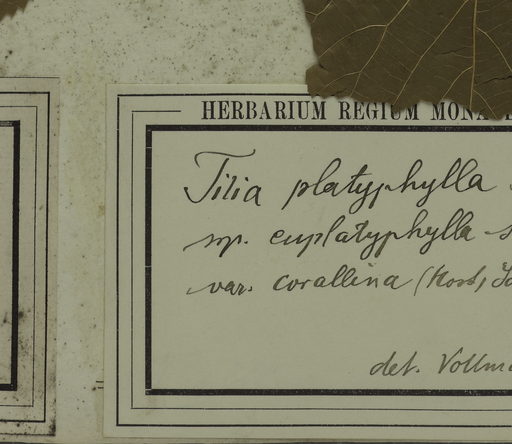 HERBARIUM REGIUM
Tilia platyphylla
sp. euplatyphylla
var. corallina (Host,
det.